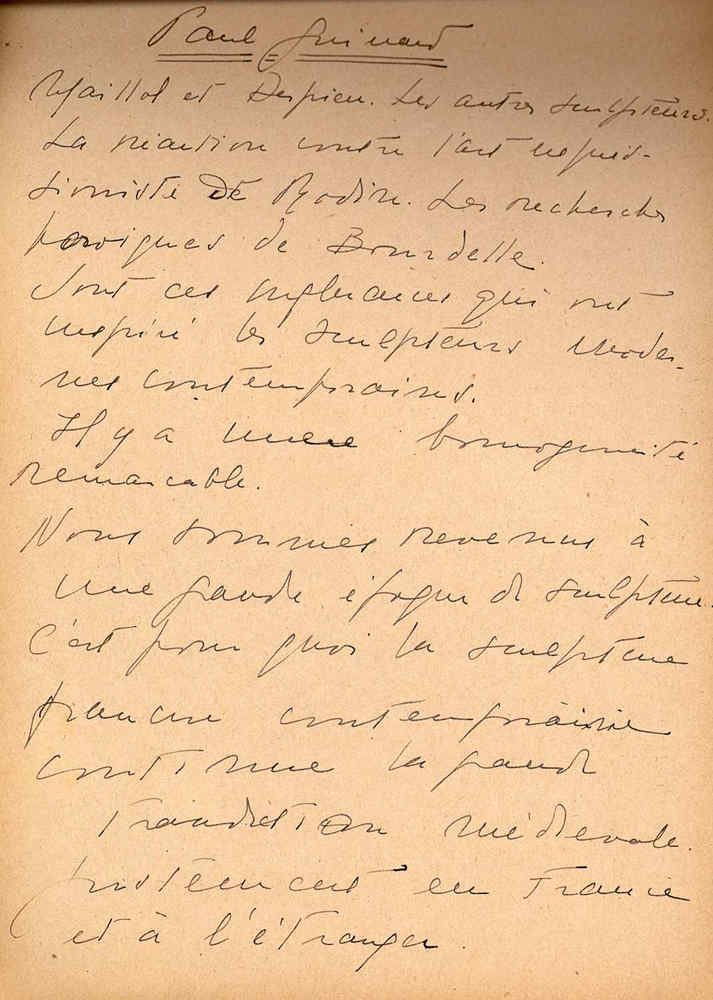 Paul Guinard
Maillol et Despieu. Les autres sculpteurs.
La réaction contre l'art impres-
sioniste de Rodin. Les recherches
heroiques de Bourdelle.
Sont ces influances qui ont
inspiré les sculpteurs moder-
nes contemporaires.
Il y a une homogeneité
remarcable.
Nous sommes revenus à
une grande époque de sculpture.
C'est pour quoi la sculpture
française contemporaire
continue la grande
traudiction médievale.
justement en France
et à l'étranger.